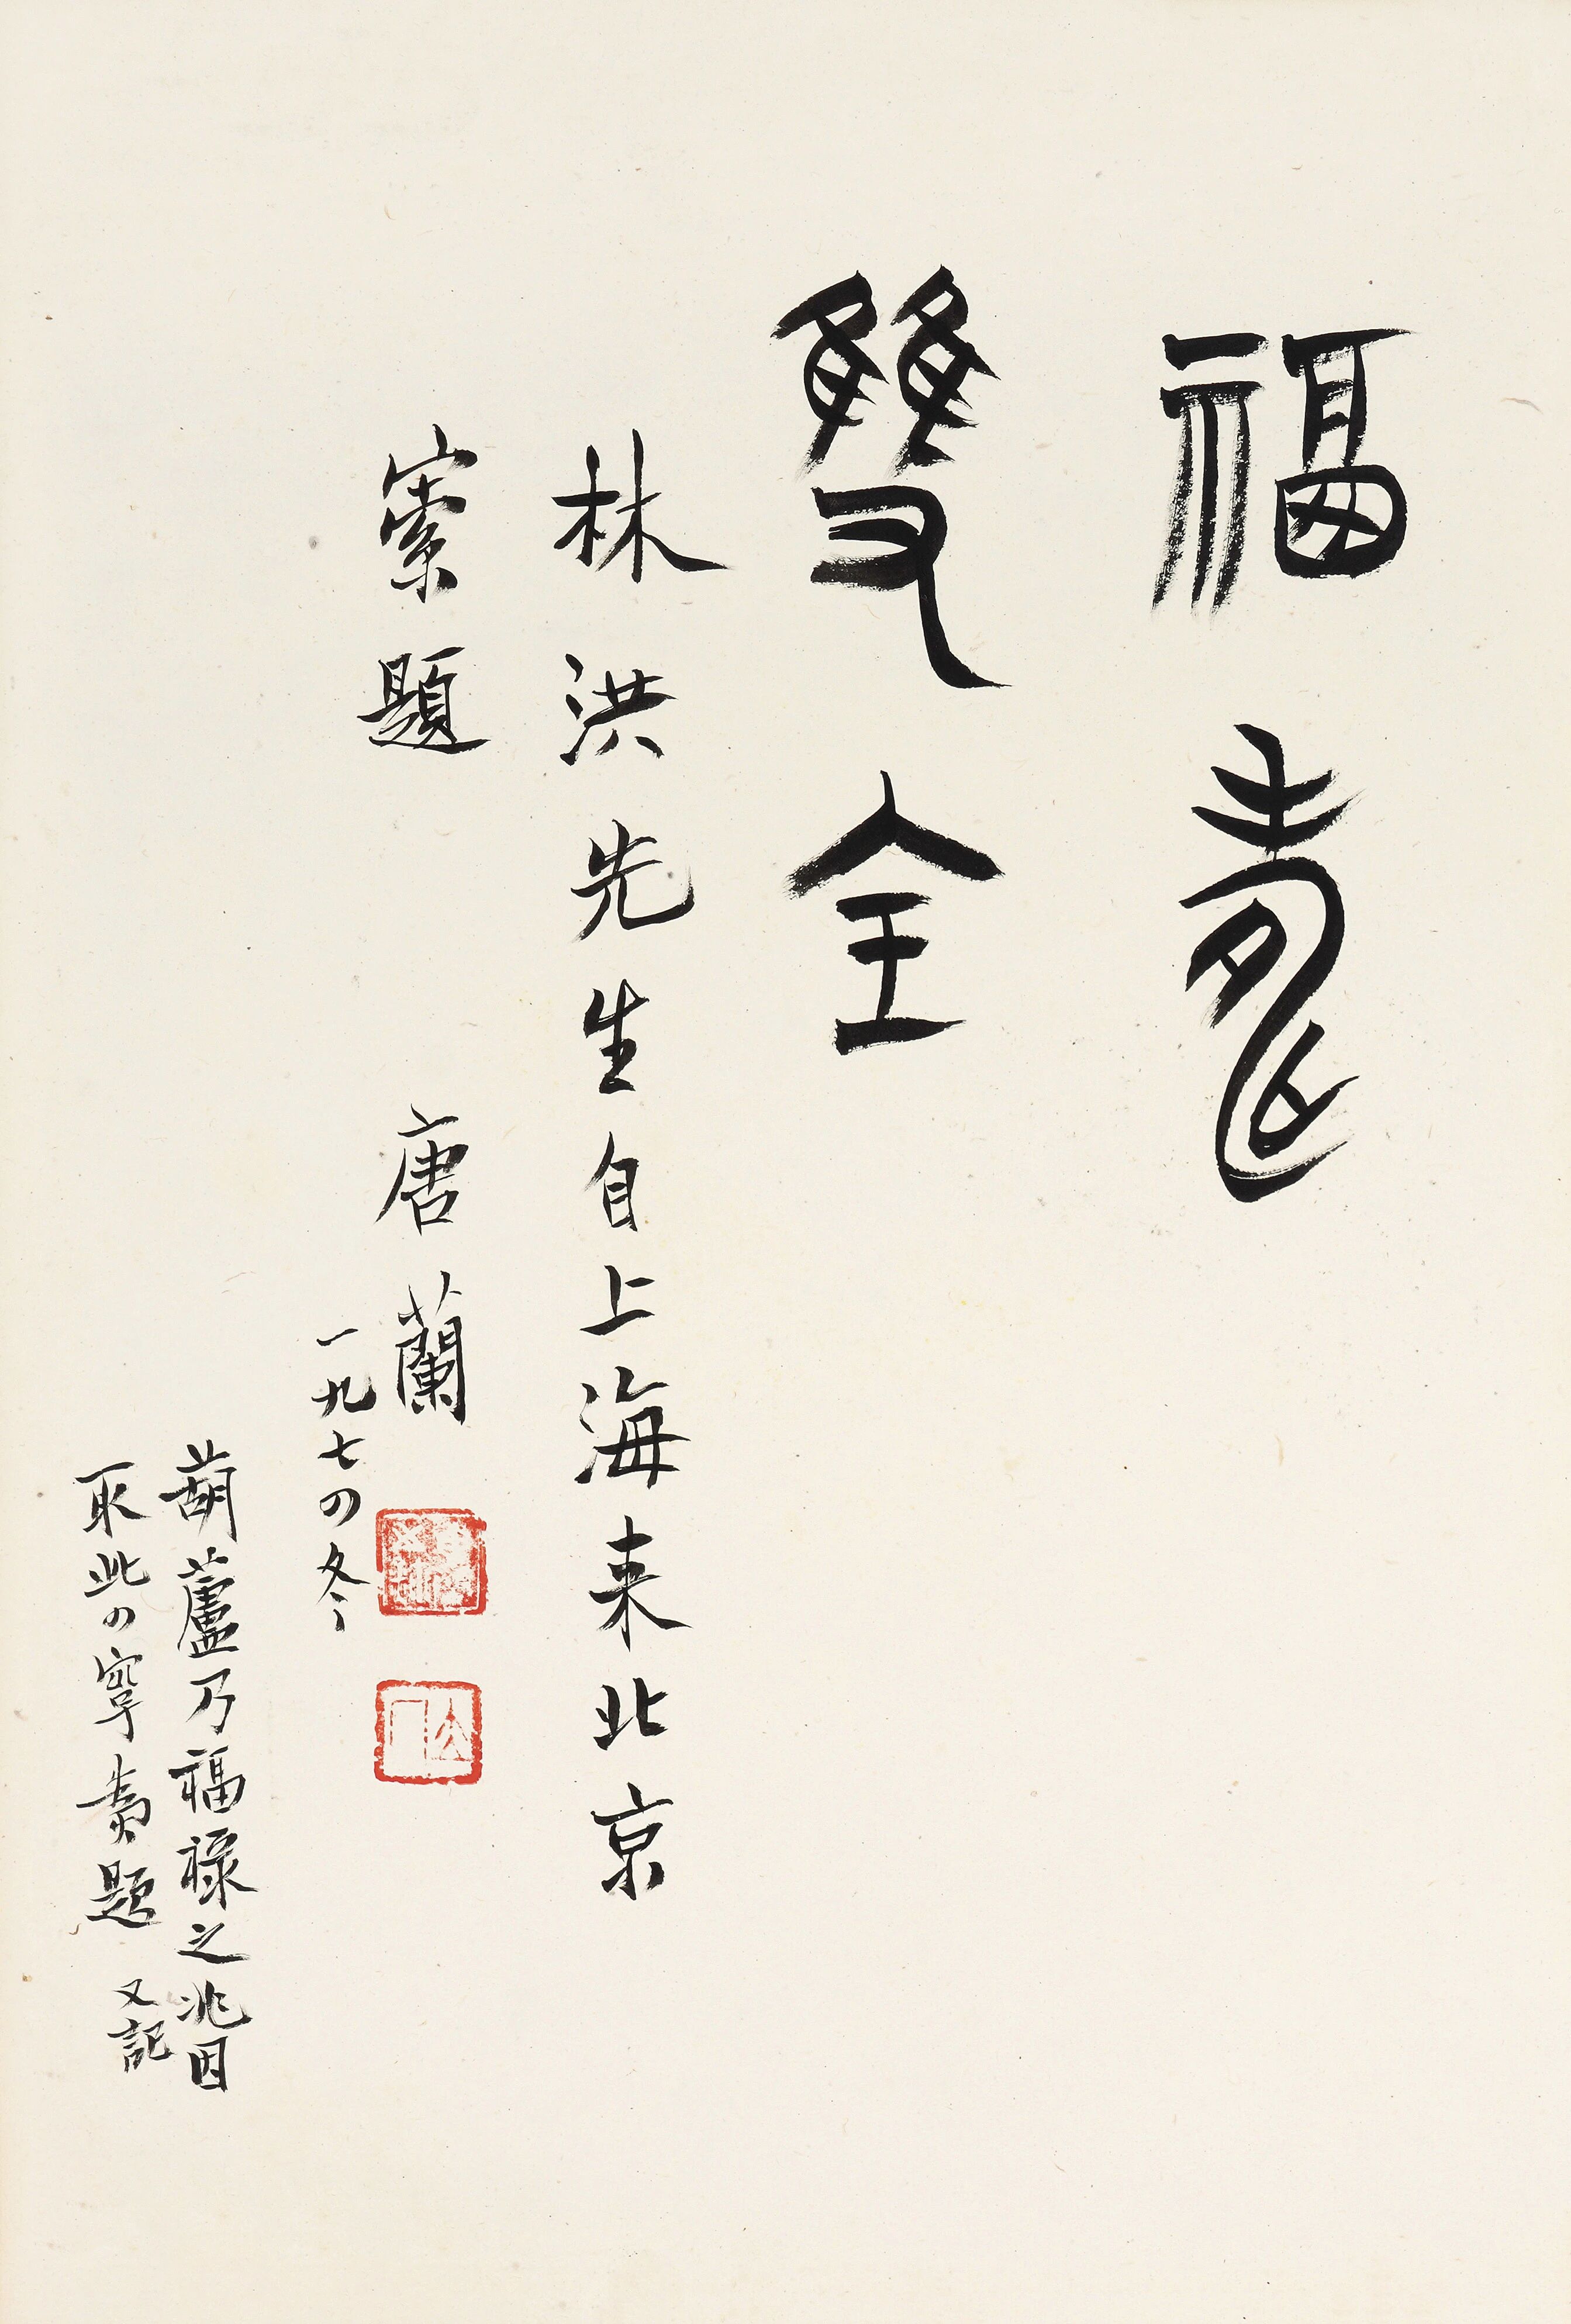 福壽
雙全
林洪先生自上海来北京
索題 唐蘭
一九七四冬
葫蘆乃福祿之兆因
取此四字題 又記